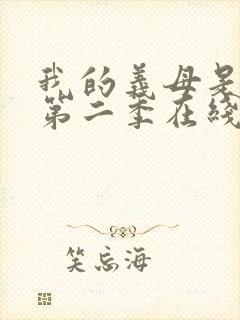 我的义母是
第二季在线
笑忘海